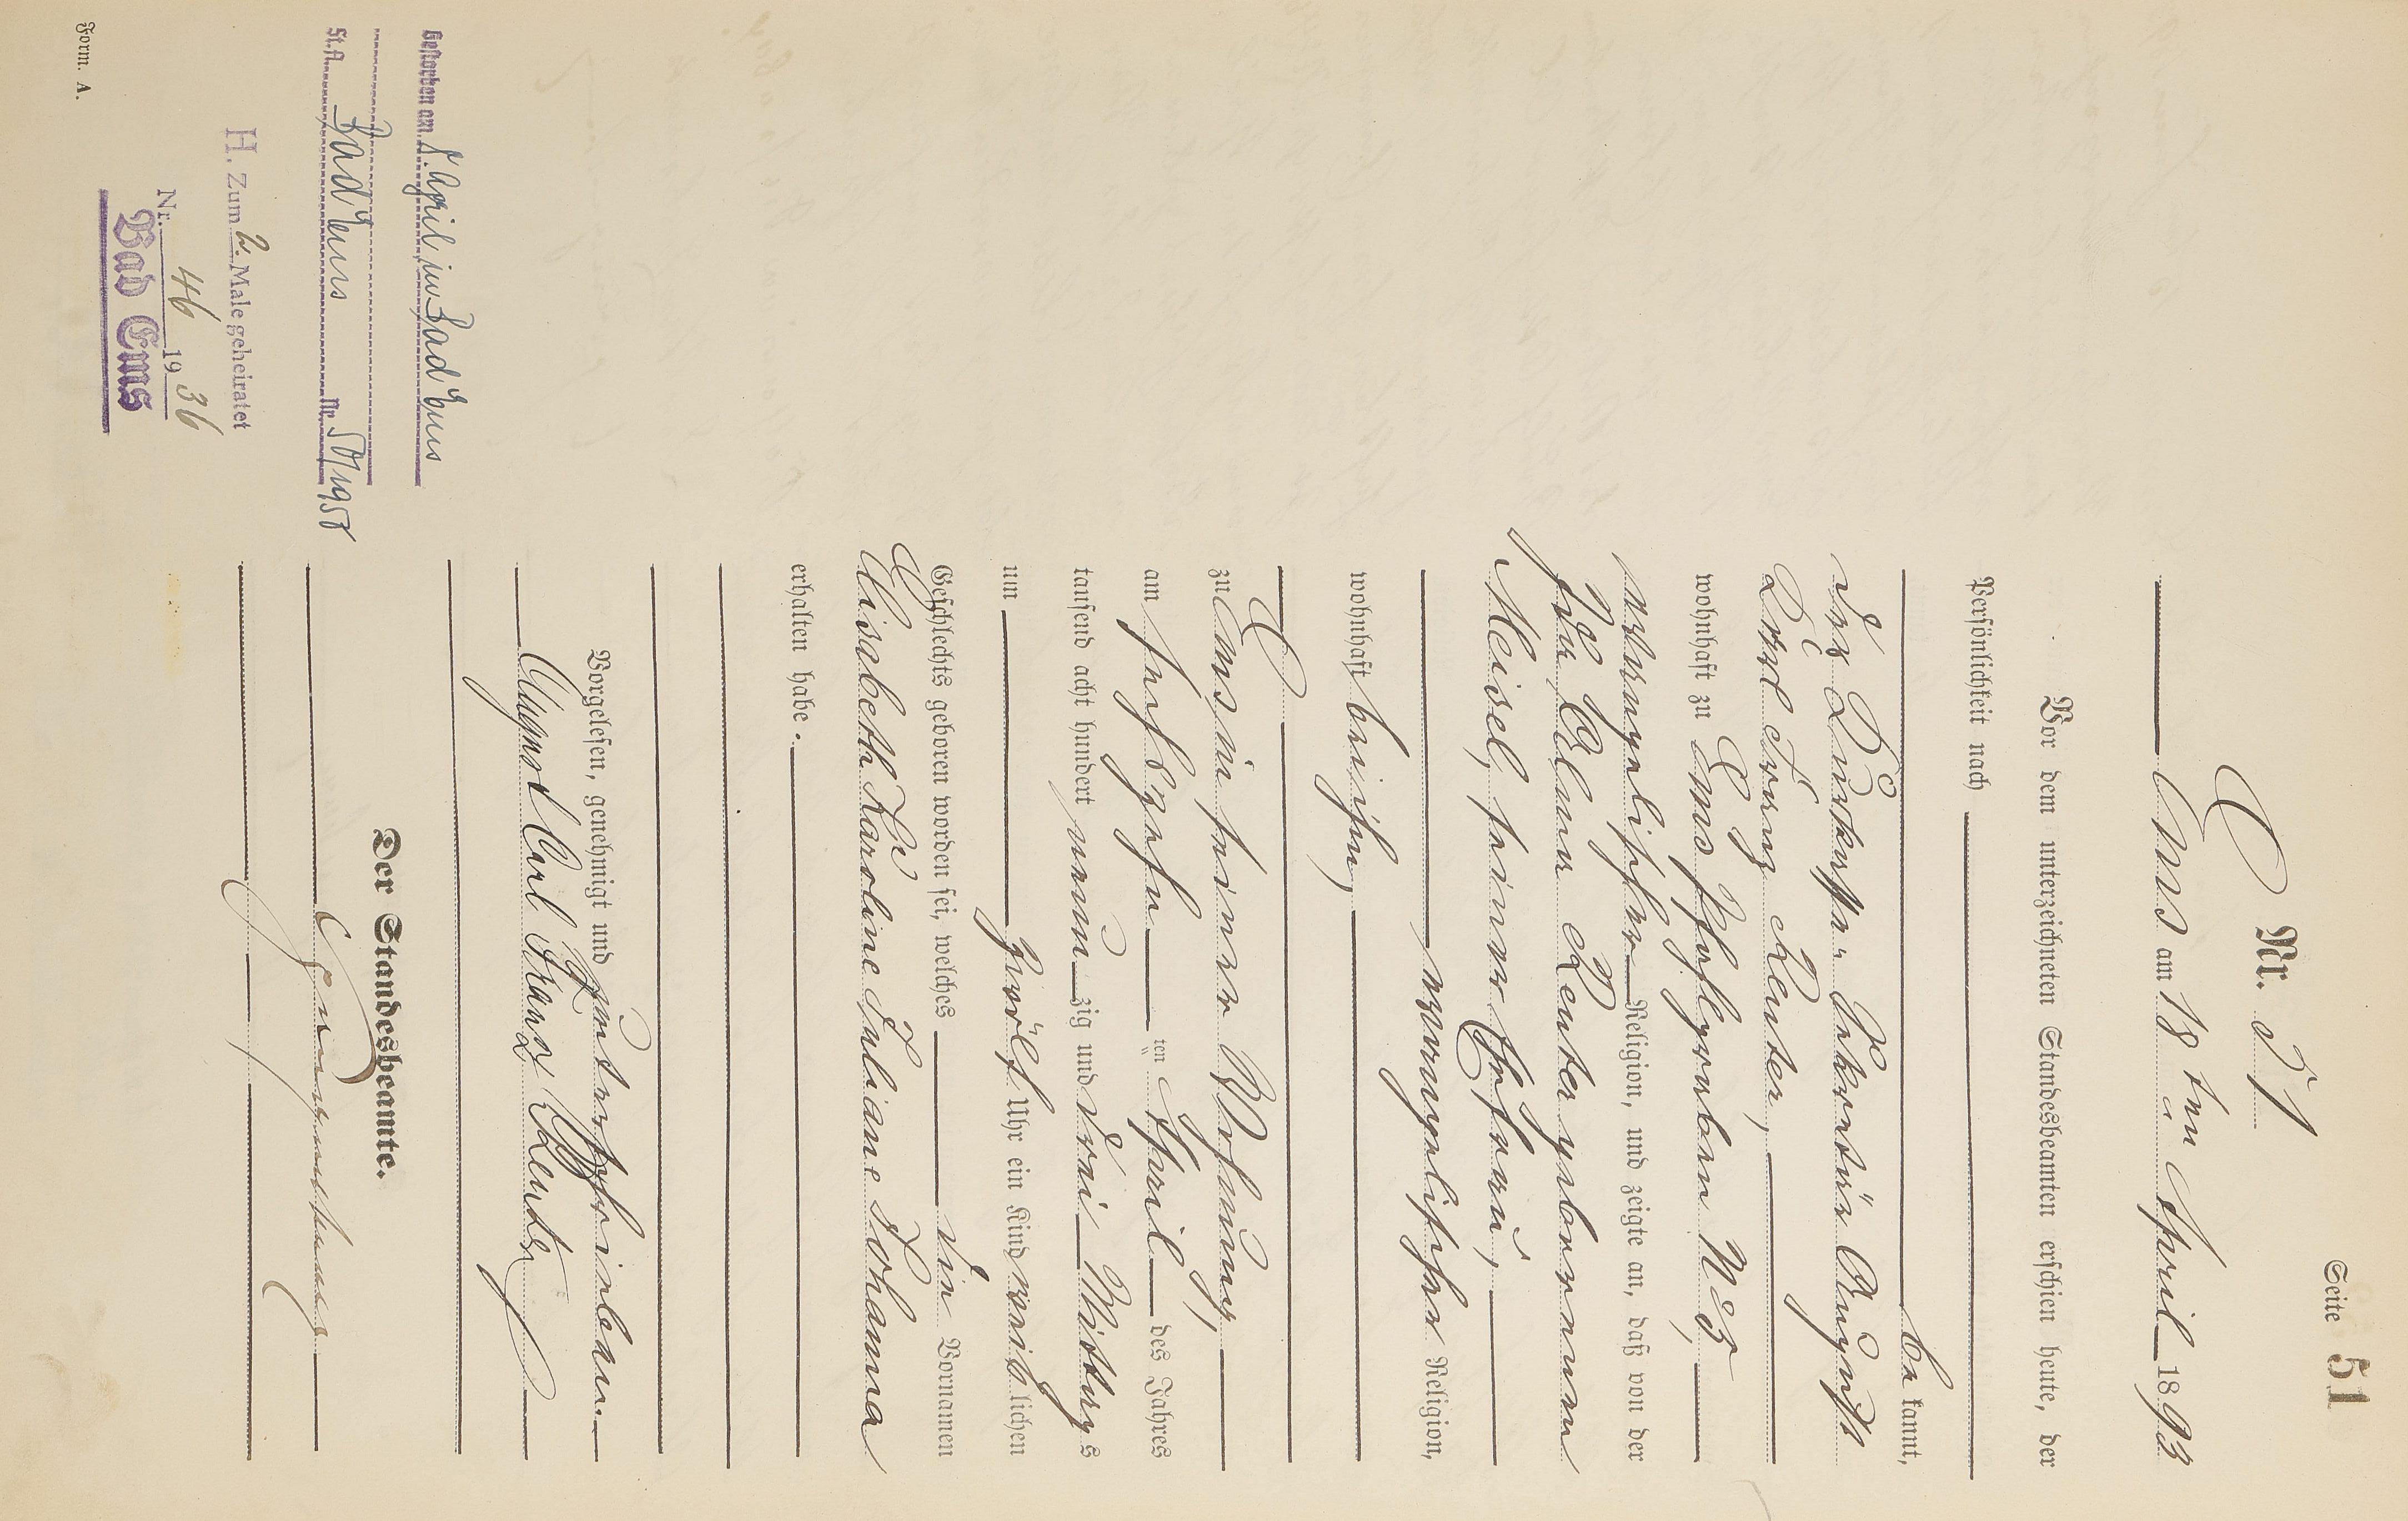 Seite 51
Nr. 51
Ems am 18 ten April 1893
Vor dem unterzeichneten Standesbeamten erschien heute, der
Persönlichkeit nach
be kannt,
der Kurkass Sekretär August
Karl Franz Reuter,
wohnhaft zu Ems
evangelischer Religion, und zeigte an, daß von der
Reuter geborenen
Meisel, seiner Ehefrau,
evangelischer Religion,
wohnhaft bei ihm,
zu Ems in seiner Wohnung,
am sechszehn ten April des Jahres
tausend acht hundert neun zig und drei Mittags
um zwölf Uhr ein Kind weib lichen
Geschlechts geboren worden sei, welches die Vornamen
Elisabeth Karoline Juliane Johanna
erhalten habe.
Vorgelesen, genehmigt und unterschrieben.
August Carl Franz Reuter
Der Standesbeamte.
Gestorben am 8. April in Bad Ems
St.A. Bad Ems Nr. 50/1958
H. Zum 2. Male geheiratet
Nr. 46 19 36
Bad Ems
Form. A.